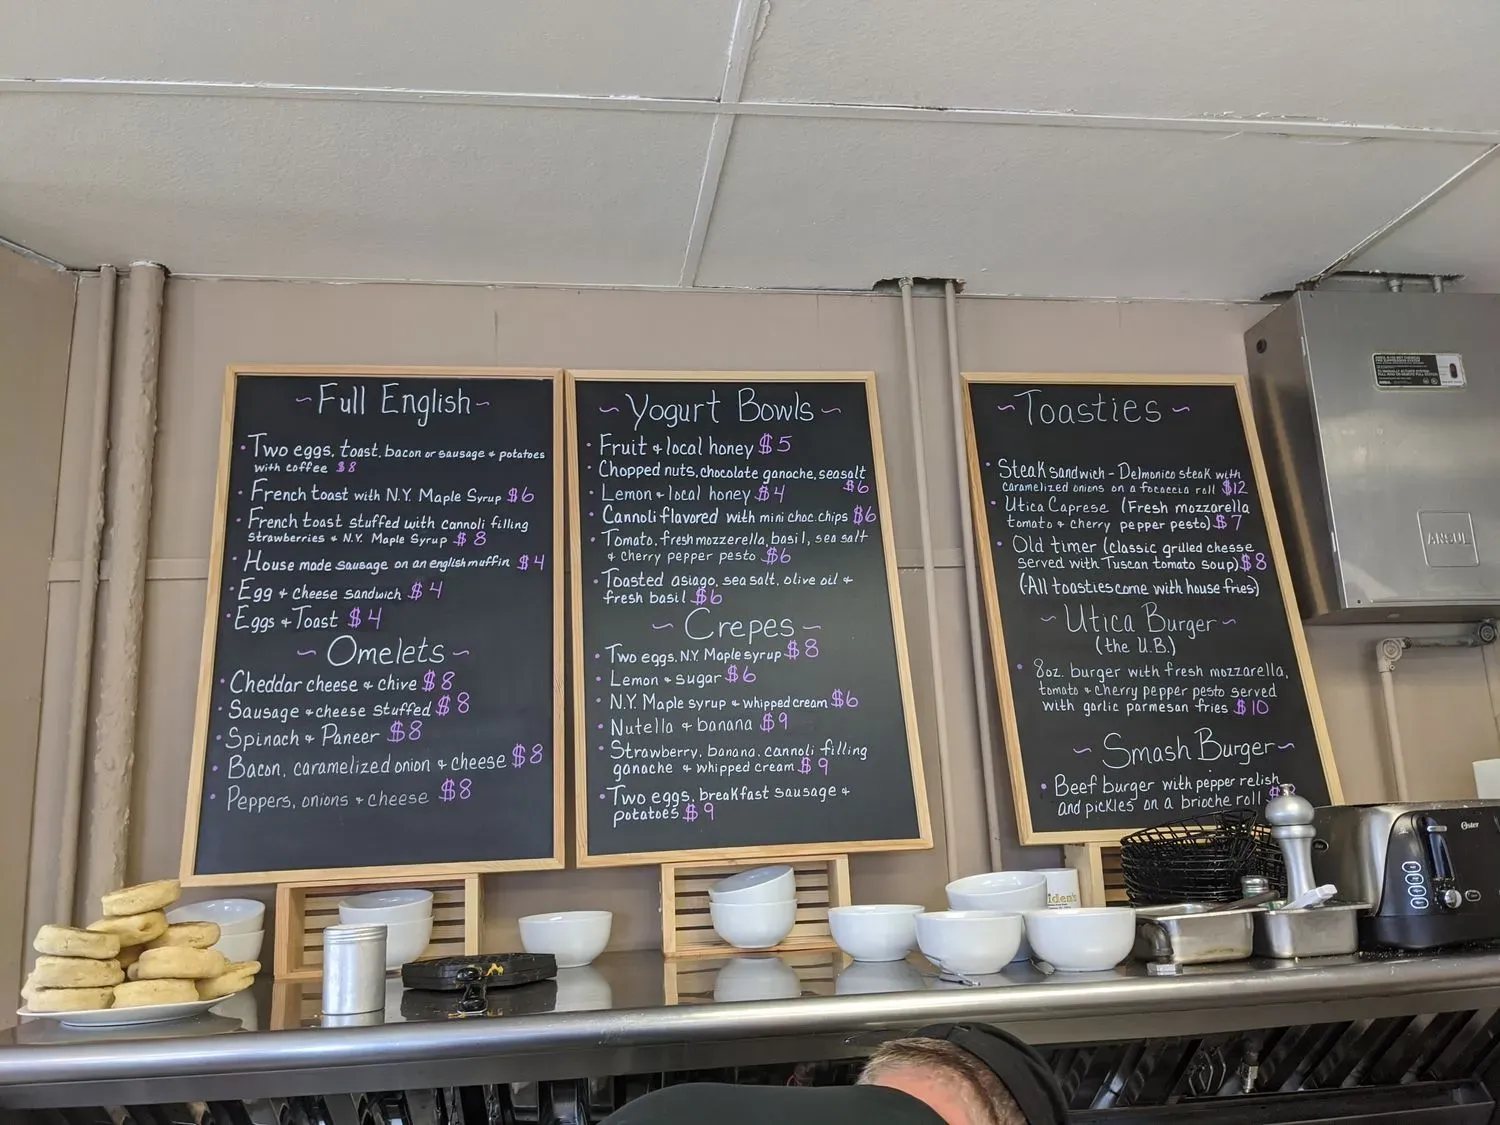 ~Full English~
• Two eggs, toast, bacon or sausage + potatoes
with coffee $8
• French toast with N.Y. Maple Syrup $6
• French toast stuffed with cannoli filling
strawberries + N.Y. Maple Syrup $8
• House made sausage on an english muffin $4
• Egg + cheese sandwich $4
• Eggs + Toast $4
~Omelets~
• Cheddar cheese + chive $8
• Sausage + cheese stuffed $8
• Spinach + Paneer $8
• Bacon, caramelized onion + cheese $8
• Peppers, onions + cheese $8
~Yogurt Bowls~
• Fruit + local honey $5
• Chopped nuts, chocolate ganache, seasalt
$6
• Lemon + local honey $4
• Cannoli flavored with mini choc. chips $6
• Tomato, fresh mozzerella, basil, sea salt
+ cherry pepper pesto $6
• Toasted asiago, sea salt, olive oil +
fresh basil $6
~Crepes~
• Two eggs, N.Y. Maple syrup $8
• Lemon + sugar $6
• N.Y. Maple syrup + whipped cream $6
• Nutella + banana $9
• Strawberry, banana, cannoli filling
ganache + whipped cream $9
• Two eggs, breakfast sausage +
potatoes $9
~Toasties~
• Steak sandwich - Delmonico steak with
caramelized onions on a focaccia roll $12
• Utica Caprese (Fresh mozzarella
tomato + cherry pepper pesto) $7
• Old timer (classic grilled cheese
served with Tuscan tomato soup) $8
(All toasties come with house fries)
~Utica Burger~
(the U.B.)
• 8oz. burger with fresh mozzarella,
tomato + cherry pepper pesto served
with garlic parmesan fries $10
~Smash Burger~
• Beef burger with pepper relish
and pickles on a brioche roll $
ANSUL
Oster